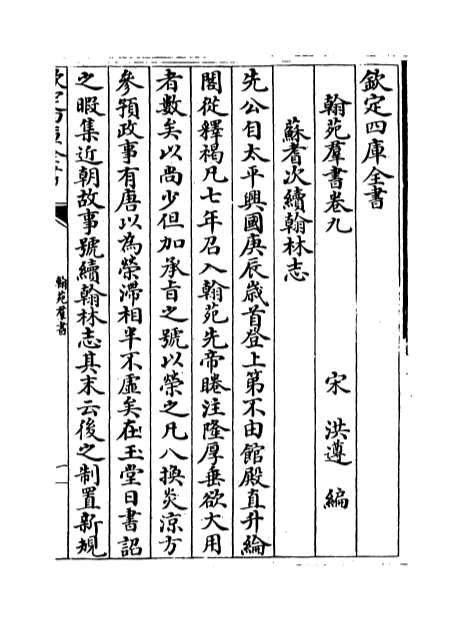 欽定四庫全書
翰苑羣書卷九
宋 洪遵 編
蘇耆次續翰林志
先公自太平興國庚辰歲首登上第不由館殿直升綸
閣從釋褐凡七年召入翰苑先帝睠注隆厚垂欲大用
者數矣以尚少但加承㫖之號以榮之凡八換炎涼方
參預政事有唐以為榮滯相半不虛矣在玉堂日書詔
之暇集近朝故事號續翰林志其末云後之制置新規
翰苑羣書
一